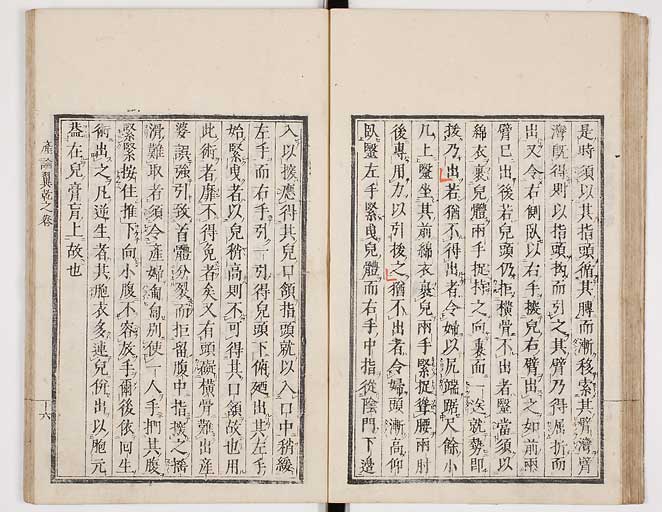 是時須以其指頭循其膊而漸移索其臂灣臂
灣既得則以指頭拘而引之其臂乃得屈折而
出又令右側臥以右手撥兒右臂出之如前兩
臂已出後若兒頭仍拒橫骨不出者醫當須以
綿衣裹兒體兩手捉持之向裏面一送就勢即
撥乃出若猶不得出者令婦以尻端踞尺餘小
几上醫坐其前綿衣裹兒兩手緊捉聳腰兩肘
後專用力以引撥之猶不出者令婦頭漸高仰
臥醫左手緊曳兒體而右手中指從陰門下邊
入以撥應得其兒口頷指頭就以入口中稍緩
左手而右手引一引得兒頭下俯廼出其左手
始緊曳者以兒稍高則不可得其口頷故也用
此術者靡不得免者矣又有頭礙橫骨難出產
婆誤強引致首體分裂而拒留腹中指撥之播
滑難取者須令產婦匍匐別使一人手捫其腹
緊緊按住推下向小腹不容放手爾後依回生
術出之凡逆生者其胞衣多連兒併出以胞元
蓋在兒膏肓上故也
產論翼乾之卷
十六